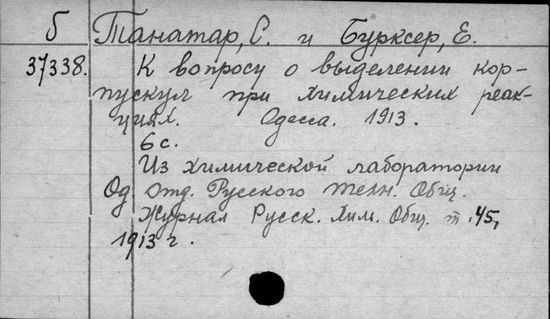 Б Танатар, С. и Бурксер, Е.
37338. К вопросу о выделении кор-
пускул при химических реак-
циях. Одесса. 1913.
6 с.
Из химической лаборатории
Од Отд. Русского Техн. Общ.
Журнал Русск. Хим. Общ. т. 45,
1913 г.